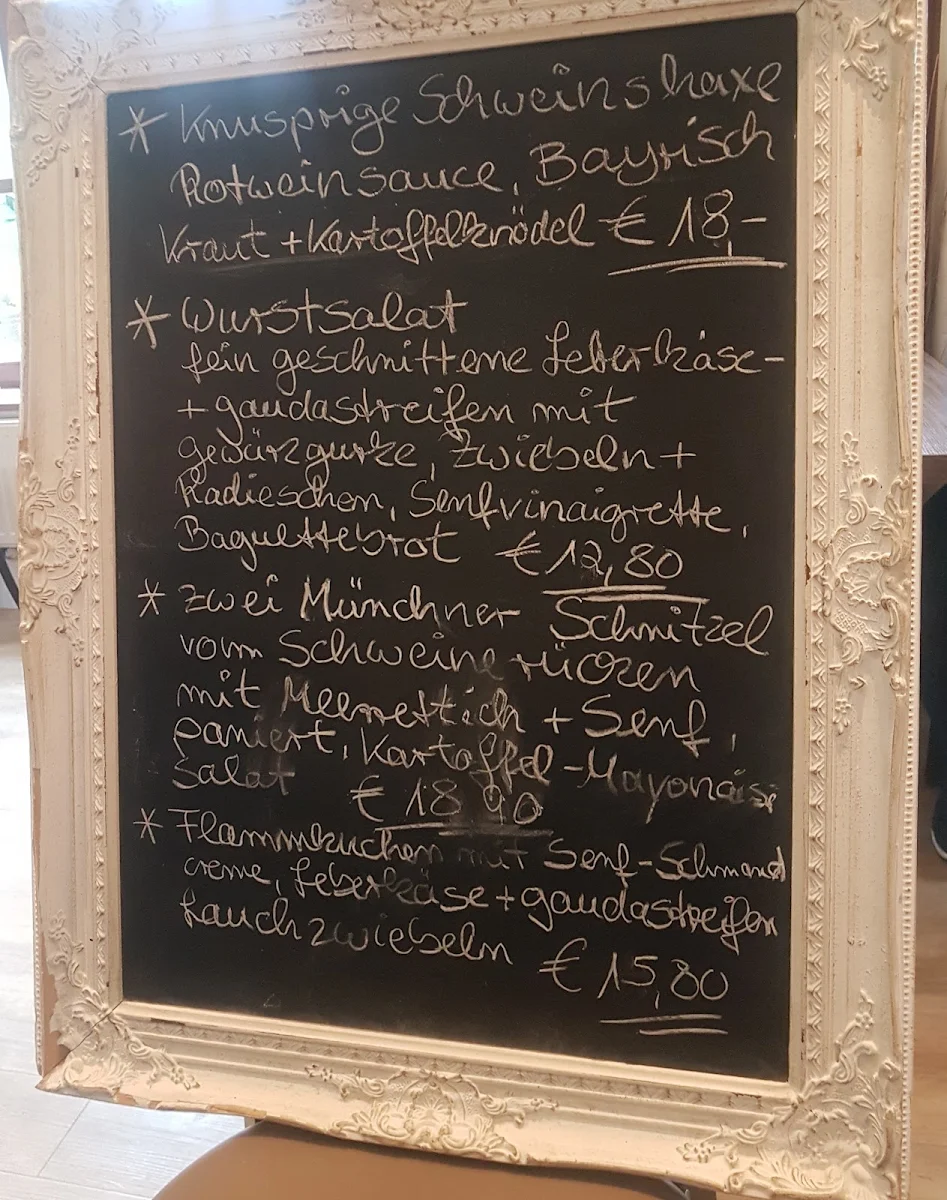 * Knusprige Schweinshaxe
Rotweinsauce, Bayrisch
Kraut + Kartoffelknödel € 18,-
* Wurstsalat
fein geschnittene Leberkäse-
+ gaudastreifen mit
gewürzgurke, Zwiebeln +
Radieschen, Senfvinaigrette,
Baguettebrot € 12,80
* Zwei Münchner Schnitzel
vom Schweinerücken
mit Meerrettich + Senf,
paniert, Kartoffel-Mayonaise
Salat € 18,90
* Flammkuchen mit Senf-Schmand
creme, Leberkäse + gaudastreifen
Lauchzwiebeln € 15,80